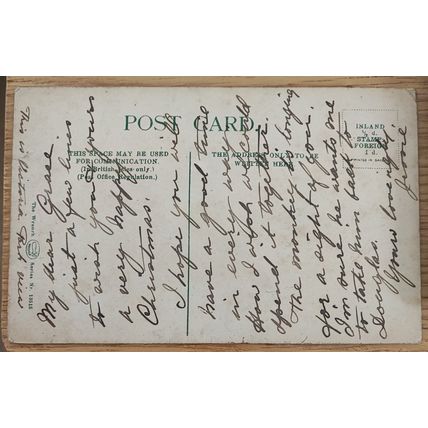 POST CARD.
THIS SPACE MAY BE USED
FOR COMMUNICATION.
(In British Isles only.)
(Post Office Regulation.)
THE ADDRESS ONLY TO BE
WRITTEN HERE
INLAND
½ d.
STAMP
FOREIGN
1 d.
The Wyrench Series Nr.
This is Victoria
My dear Grace
just a few lines
to wish you & yours
a very happy
Christmas.
I hope you will
have a good time
in every
How I wish we could
spend it together
The longing
for a sight of you.
I'm sure he wants me
to take him back to
Douglas.
Yours